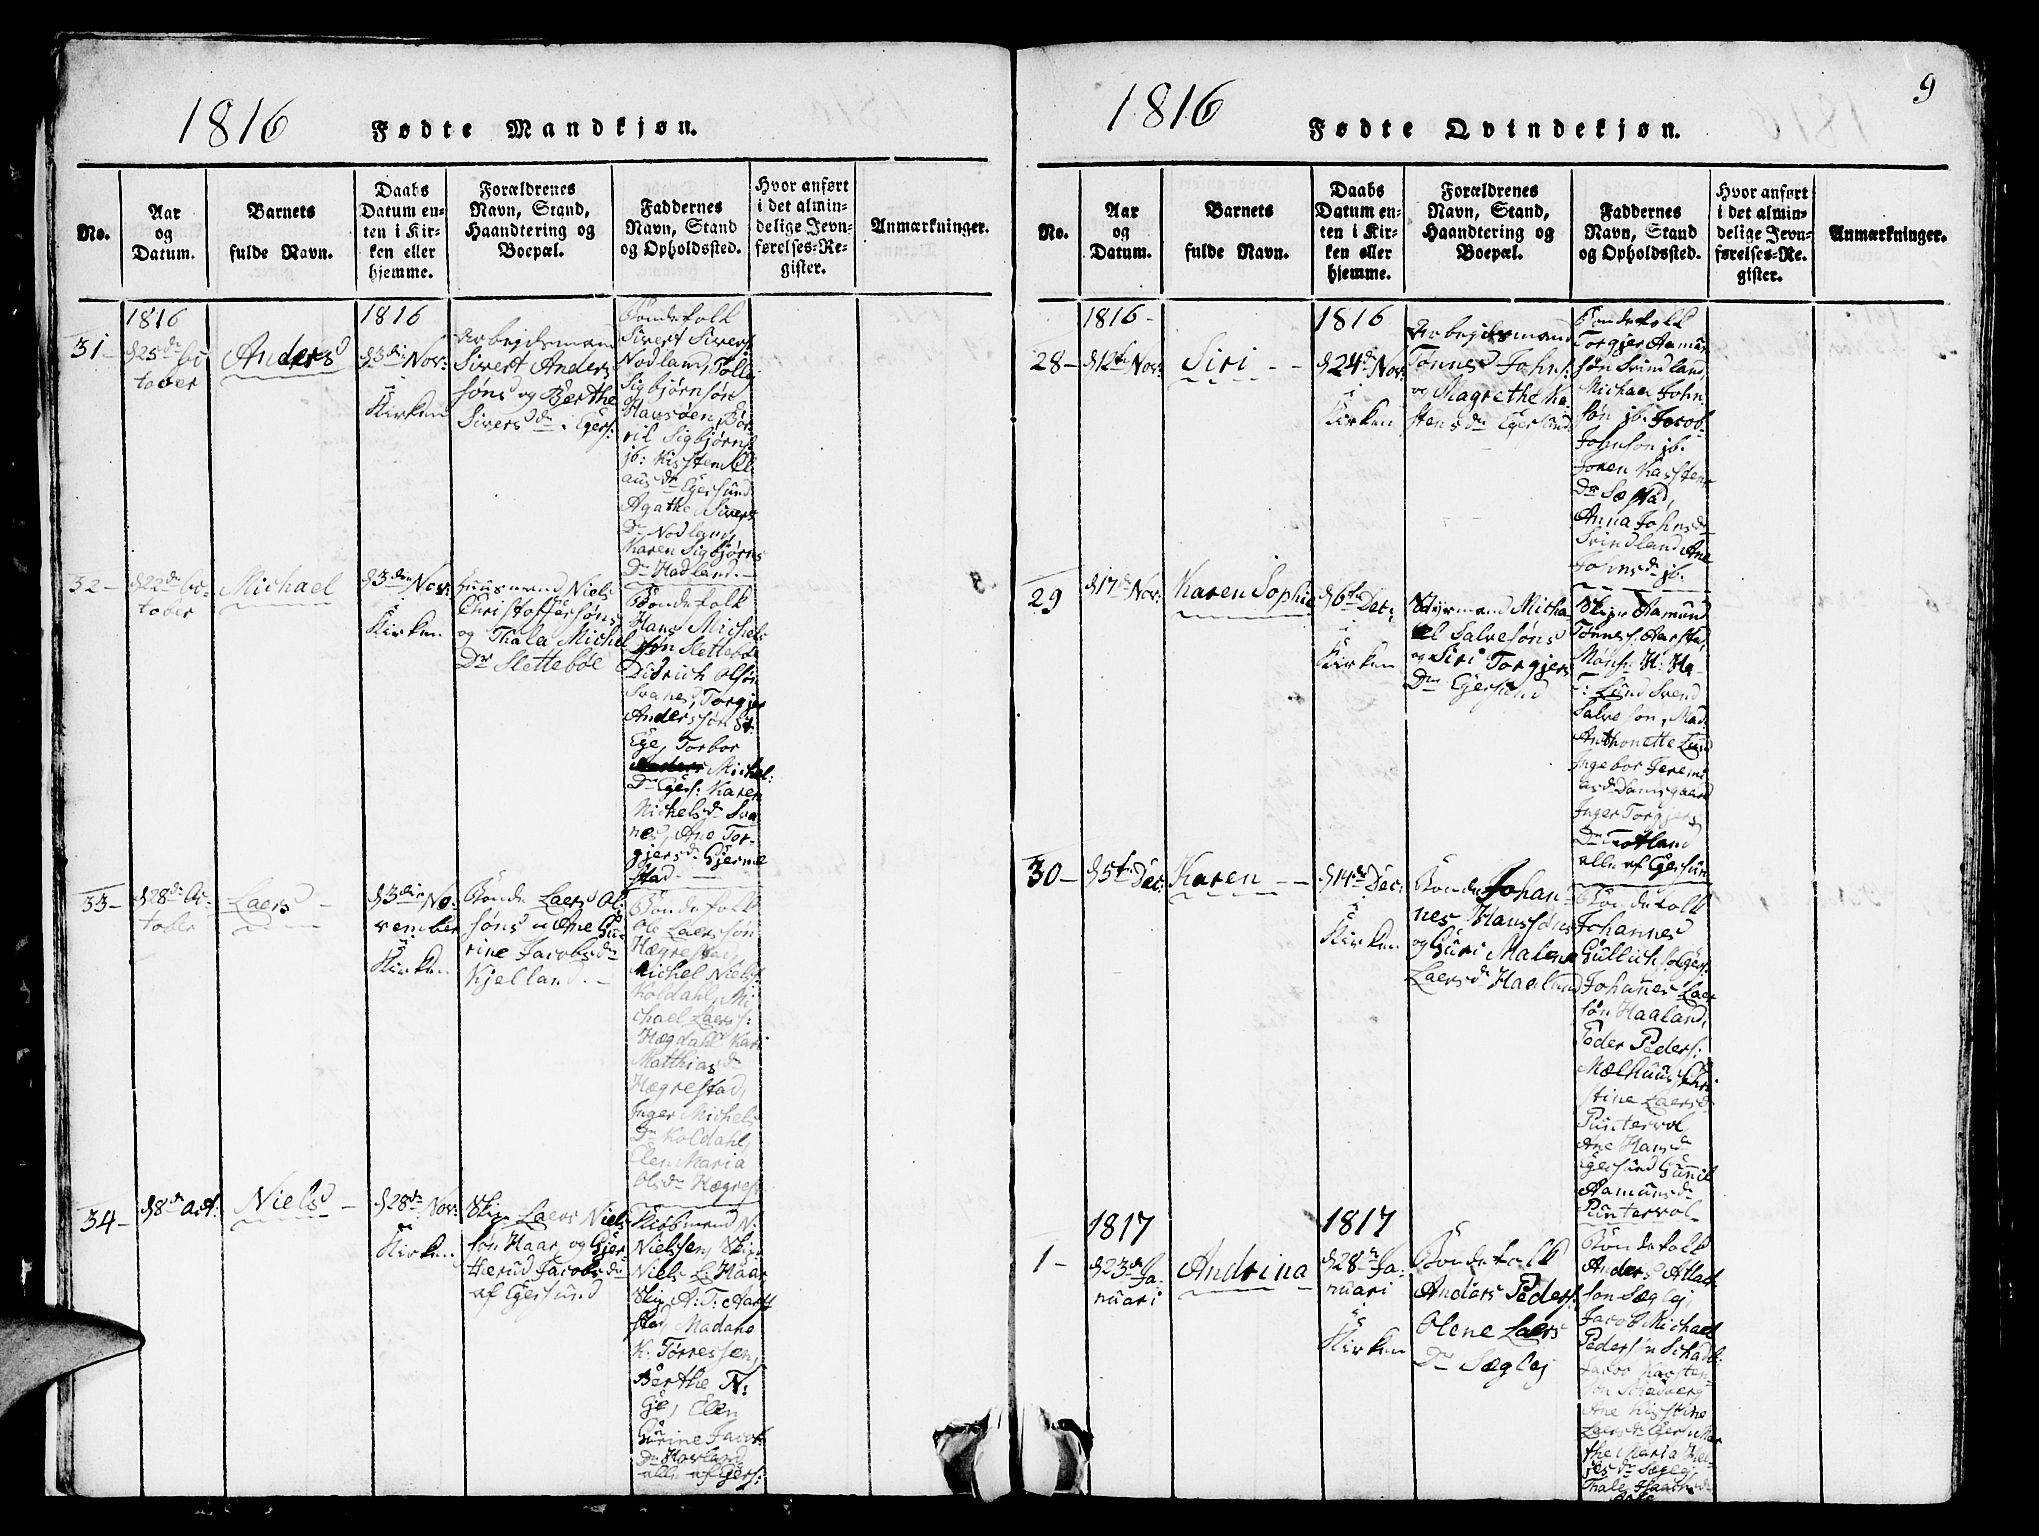 1816
Fødte Mandkjøn.
No.
Aar
og
Datum.
Barnets
fulde Navn.
Daabs
Datum en-
ten i Kir-
ken eller
hjemme.
Forældrenes
Navn, Stand,
Haandtering og
Boepæl.
Faddernes
Navn, Stand
og Opholdssted.
Hvor anført
i det almin-
delige Jevn-
førelses-Re-
gister.
Anmærkninger.
31-
1816
d 25de Oc
tober
Anders
1816
d 3die Nov:
i
Kirken
Arbeydsmand
Sivert Anders
søns og Berthe
Sivers Dr. Egers:
Bondefolk
Sivert Sivers
Nodland, Tolle
Sigbjørnsøn
Havsøen, Bor-
ril Sigbjørns
jb: Kisten Cl
aus Dr Egersund
Agathe Sivers
Dr Nodland,
Karen Sigbjørns
Dr Hadland.-
32-
d 22de Oc-
tober
Michael
d 3die Nov:
i
Kirken
Huusmand Niels
Christoffersøns
og Thala Michel
Dr Slettebøe
Bondefolk
Hans Michels
søn Slettebøe
Didrich Olsøn
Svanes, Torgjer
Anderssøn St:
Ege, Torbor
Michel:
Dr Egers: Karen
Michelsdr Sva
nes, Ane Tor-
gjers dr Gjerme
stad.
33-
d 28de Oc-
tober
Laers
d 3die No-
vember
i
Kirken
Bonde Laers Ol-
søns og Ane Gu-
rine Jacobsdr
Kjelland.-
Bondefolk
Ole Laersøn
Hægrestad,
Michel Niels:
Koldahl, Mi
chael Laerss:
Hægdahl Kari
Matthiasdr
Hægrestad,
Inger Michels
Dr Koldahl,
Elen Maria
Olsdr Hægres
34-
d 8de Oct:
Niels
d 28de Nov:
i
Kirken
Skip. Laers Niels
søn Haar og Gjer
therud Jacobsdr
af Egersund
Kiøbmand N:
Nielssen, Skip
Niels L: Haar
Skip. A: T: Aarst
stad, Madame
K. Tørressen,
Berthe N:
Ege, Elen
Gurine Jacobs
Dr Havland
alle af Egers:
1816
9
Fødte Qvindekjøn.
No.
Aar
og
Datum.
Barnets
fulde Navn.
Daabs
Datum en-
ten i Kir-
ken eller
hjemme.
Forældrenes
Navn, Stand,
Haandtering og
Boepæl.
Faddernes
Navn, Stand
og Opholdssted.
Hvor anført
i det almin-
delige Jevn-
førelses-Re-
gister.
Anmærkninger.
28-
1816-
d 12te Nov:
Siri
1816
d 24de Nov:
i
Kirken
Arbejdsmand
Tønnes Johns:
og Magrethe Ka
stens dr Egersund
Bondefolk
Torgjer Aamun
søn Svindland
Michael John
søn jb. Jacob
Johnson jb.
Joren Kasten
Dr Sæstad,
Anna Johnsdr
Svindland Ane
Johnsdr jb.
29
d 17de Nov:
Karen Sophie
d 6te Dec:
i
Kirken
Styrmand Micha
el Salvesøns
og Siri Torgjers
Dr Egersund
Skip: Aamund
Tønness: Aarstad,
Mons: H: Ha-
: Lund Svend
Salveson, Mad:
Anthonette Lund
Ingebor Jeremi
asdr Damsgaard
Inger Torgjers
Dr Tøtland
alle af Egersun
30-
d 5te Dec:
Karen
d 14de Dec:
i
Kirken
Bonde Johan-
nes Hanssøns
og Guri Malene
Laersdr Haaland
Bondefolk
Johannes
Gullichs: Egers:
Johannes Laer
søn Haaland,
Peder Peders:
Mælhuus, Chri
stine Laersdr
Puntervol
Ane Hansdr
Egersund Gunnil
Aamundsdr
Puntervol
1-
1817
d 23de Ja-
nuari
Andrina
1817
d 28de Ja-
nuari
i
Kirken
Bondefolk
Anders Peders:
Olene Laers
Dr Sæglej
Bondefolk
Anders Atlak
søn Sæglej,
Jacob Michael
Pedersøn Schadb:
Jacob Karsten
søn Schadberg
Ane Kistine
Laersdr Egers: Mar
the Maria Niel-
jesdr Sæglej
Thale Haaversdr